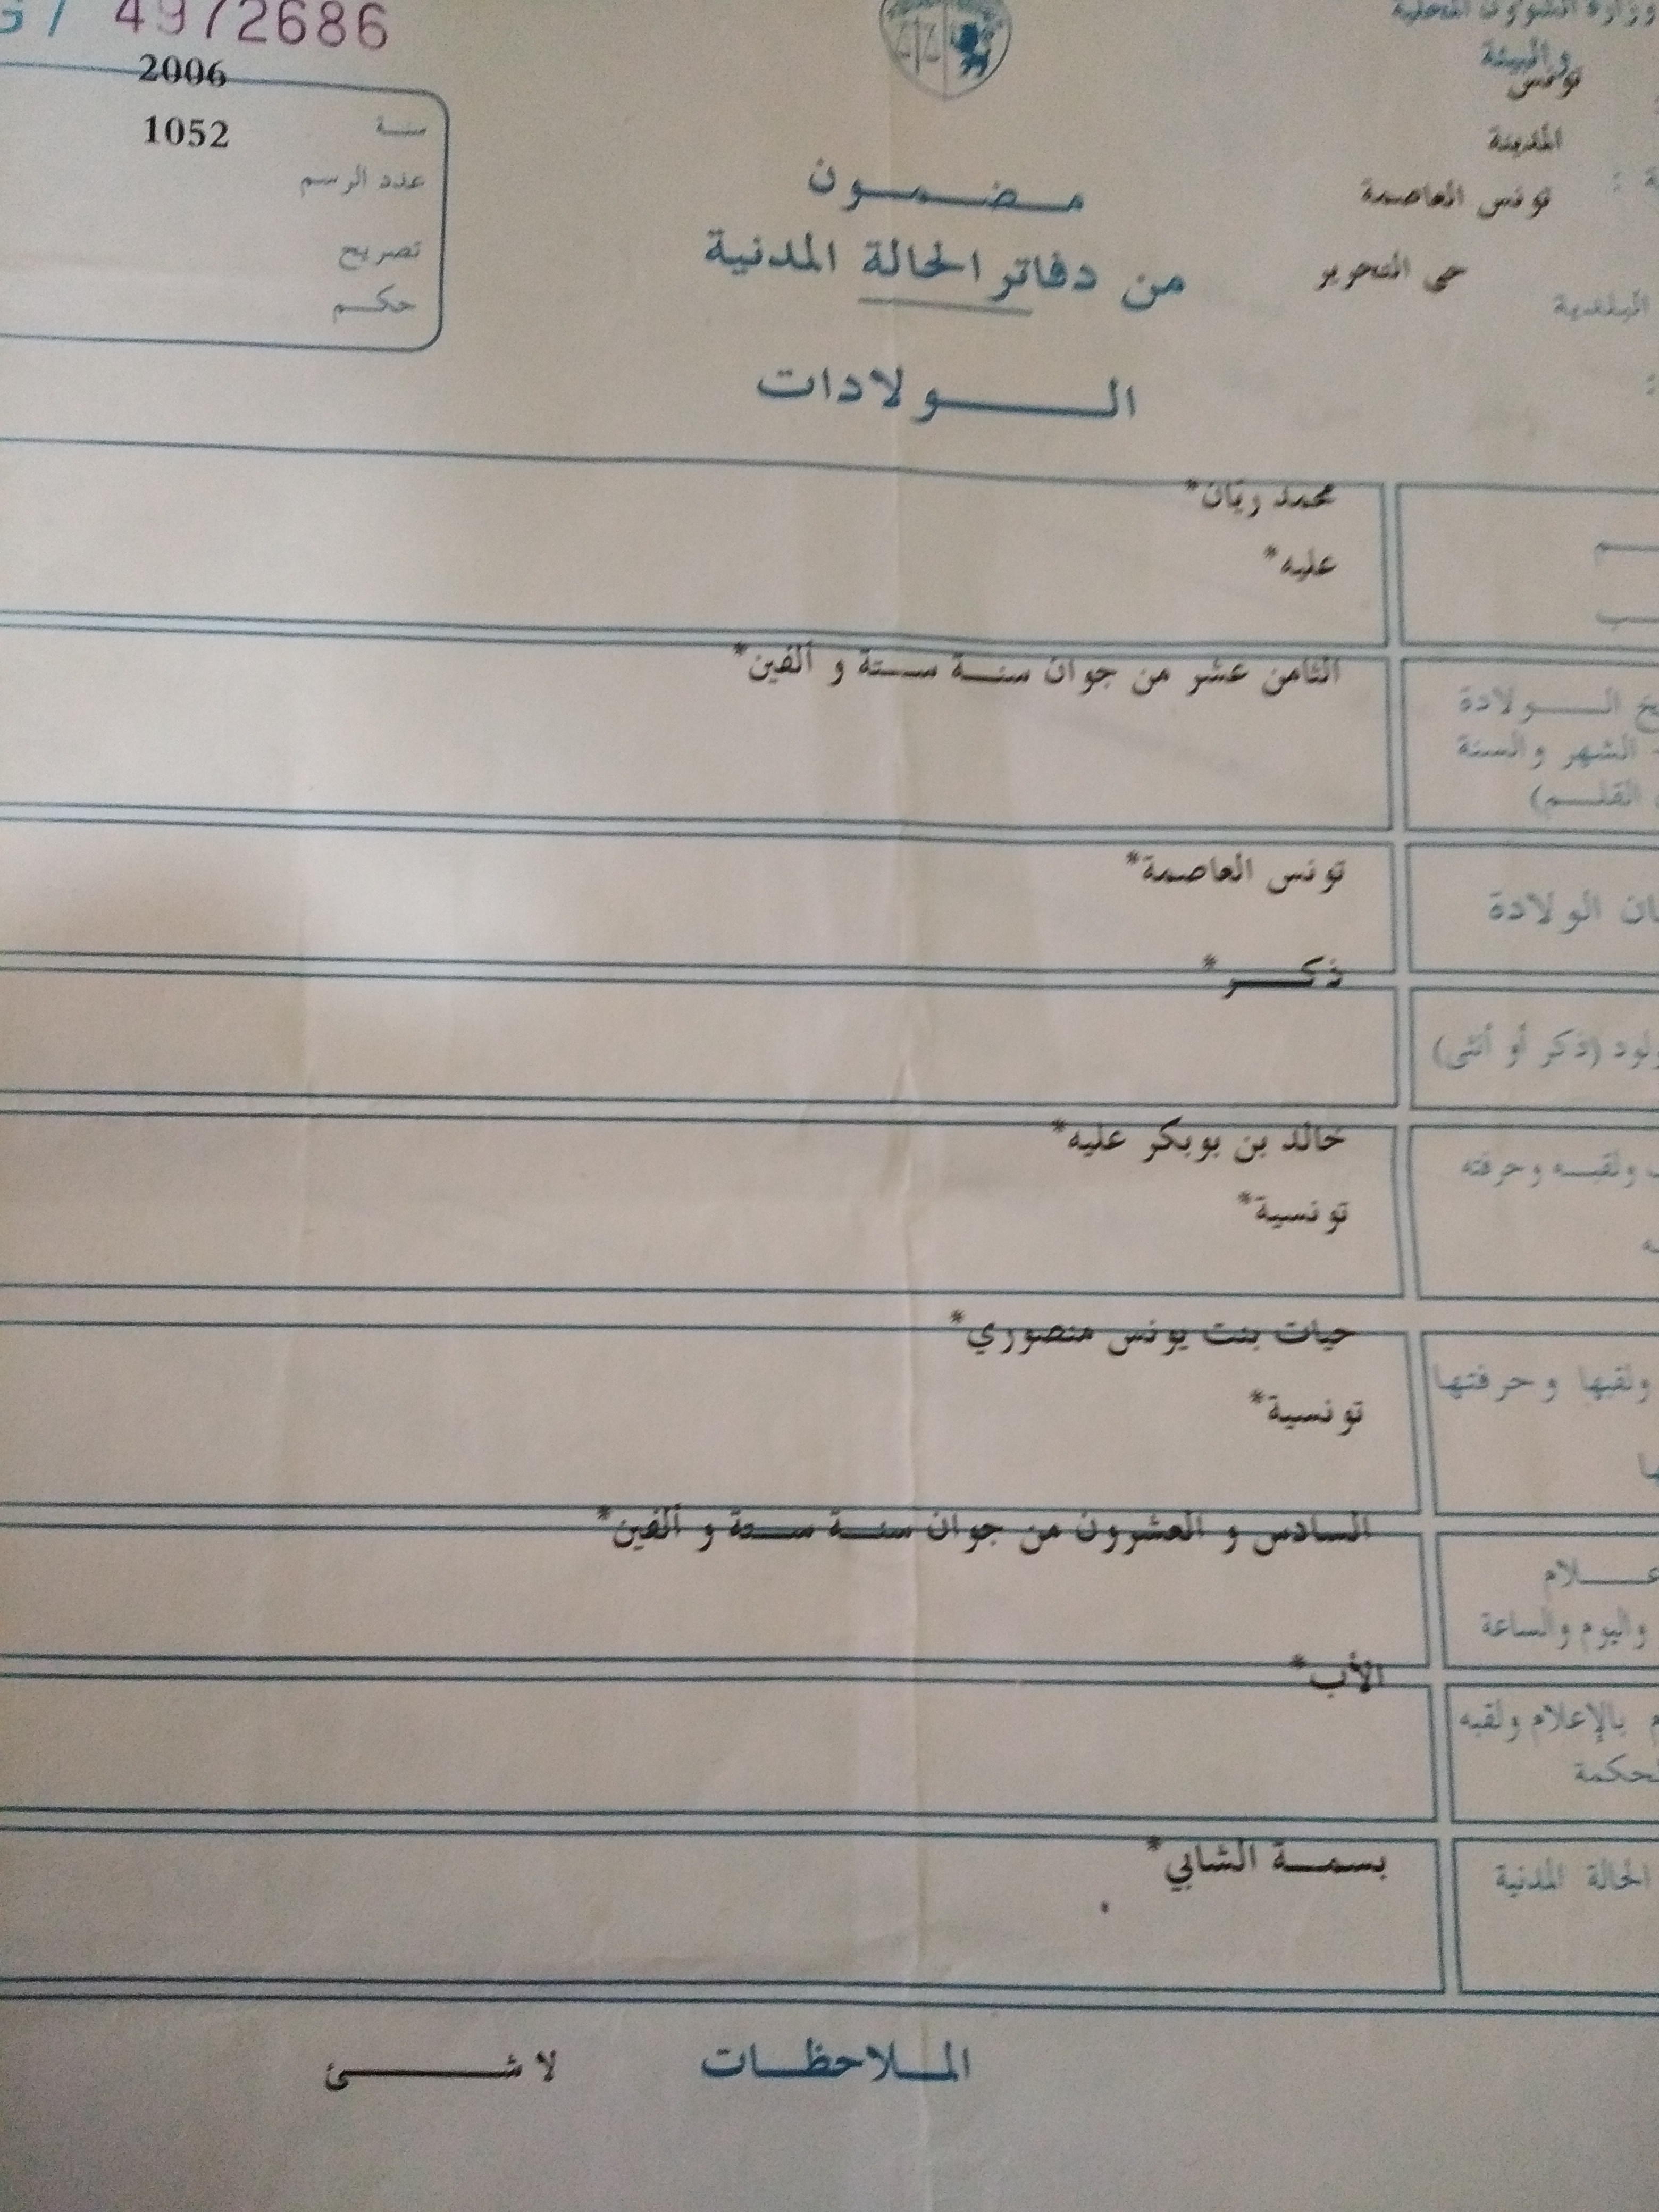 G / 4972686
وزارة الشؤون المحلية
والبيئة
تونس
المدينة
تونس العاصمة
حي التحرير
البلدية
2006
سنة
1052
عدد الرسم
تصريح
حكم
مضمون
من دفاتر الحالة المدنية
الولادات
محمد ريان*
عليه*
الثامن عشر من جوان سنة ستة و ألفين*
الولادة
الشهر والسنة
القلم)
تونس العاصمة*
الولادة
ذكر*
(ذكر أو أنثى)
خالد بن بوبكر عليه*
ولقبه وحرفته
تونسية*
حيات بنت يونس منصوري*
ولقبها وحرفتها
تونسية*
السادس و العشرون من جوان سنة ستة و ألفين*
واليوم والساعة
الأب*
بالإعلام ولقبه
بسمة الشابي*
الحالة المدنية
الملاحظات لا شئ